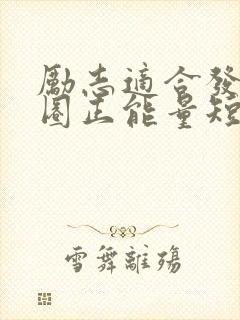 勵志適合發
圈正能量短
雪舞離殤